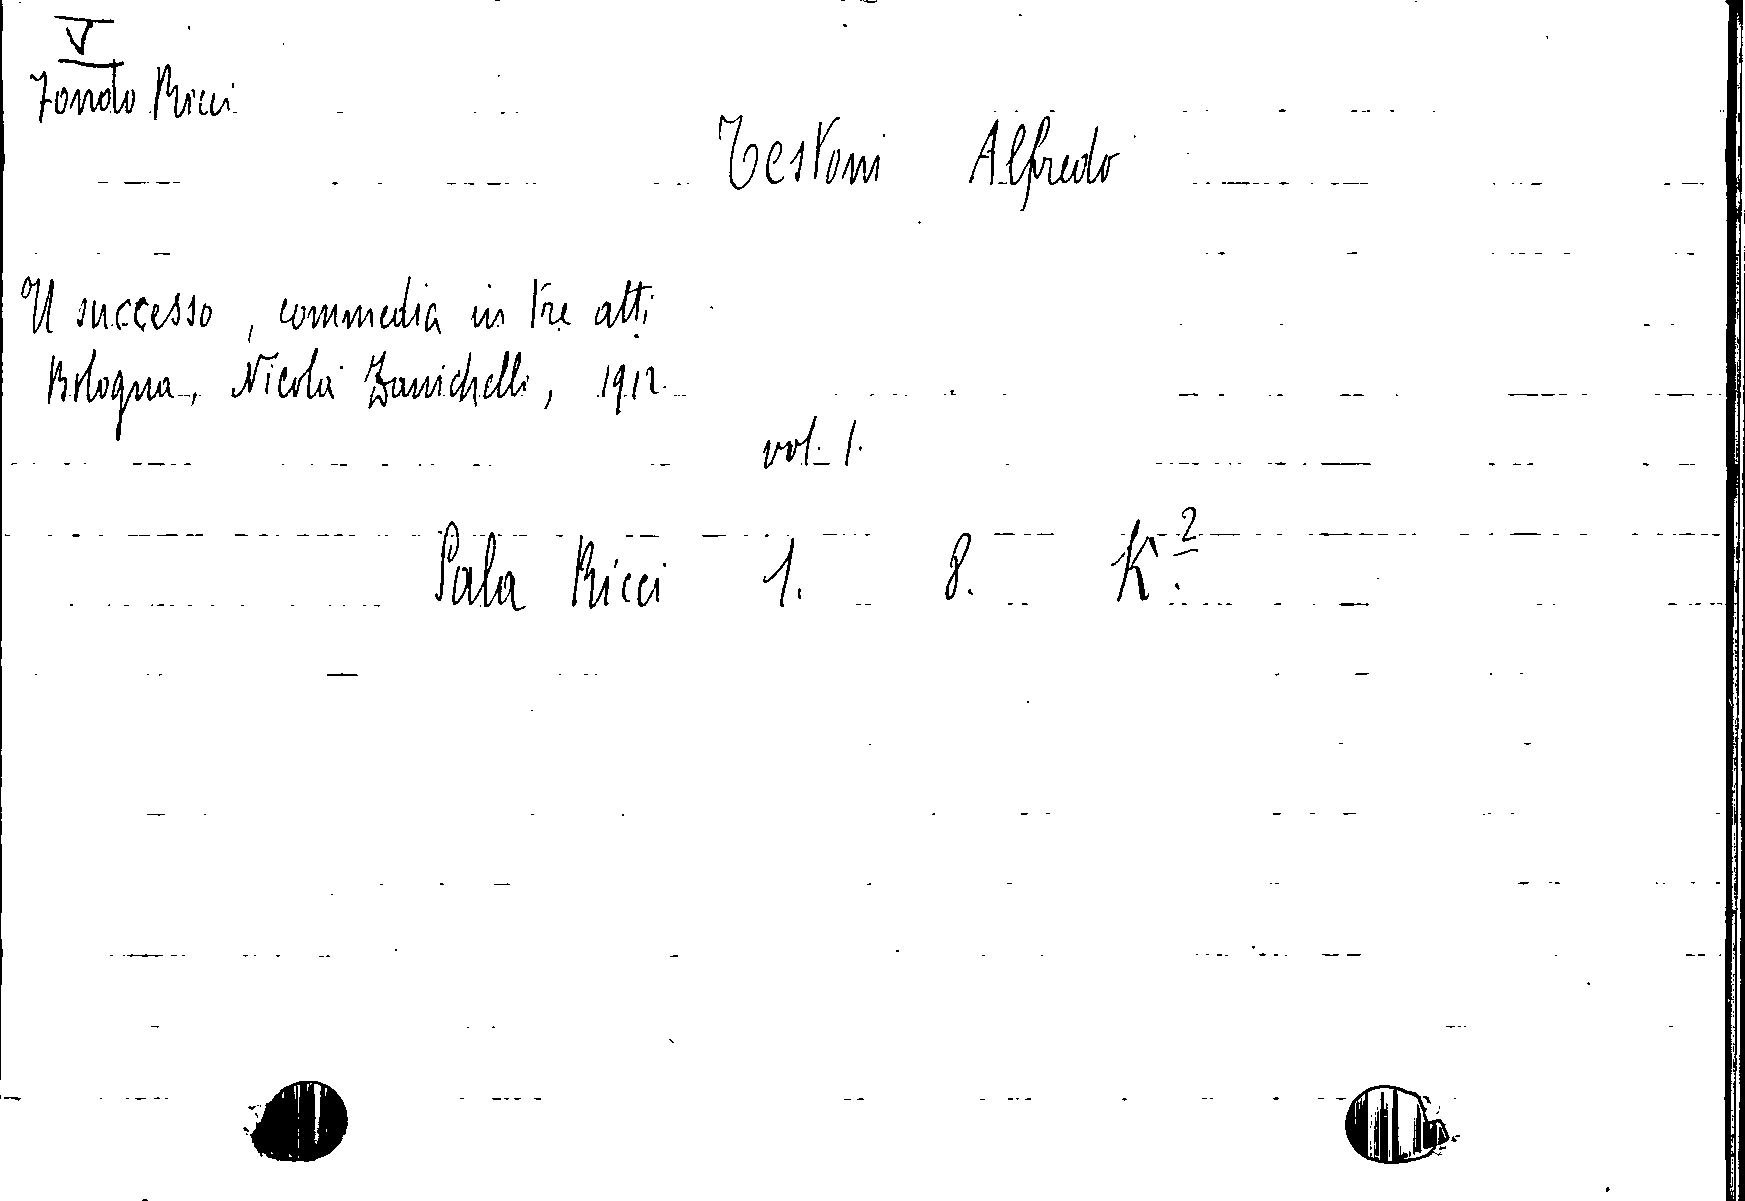 V
Fondo Ricci
Testoni Alfredo
Il successo, commedia in tre atti
Bologna, Nicola Zanichelli, 1912.
vol. 1.
Sala Ricci 1. 8. K.2